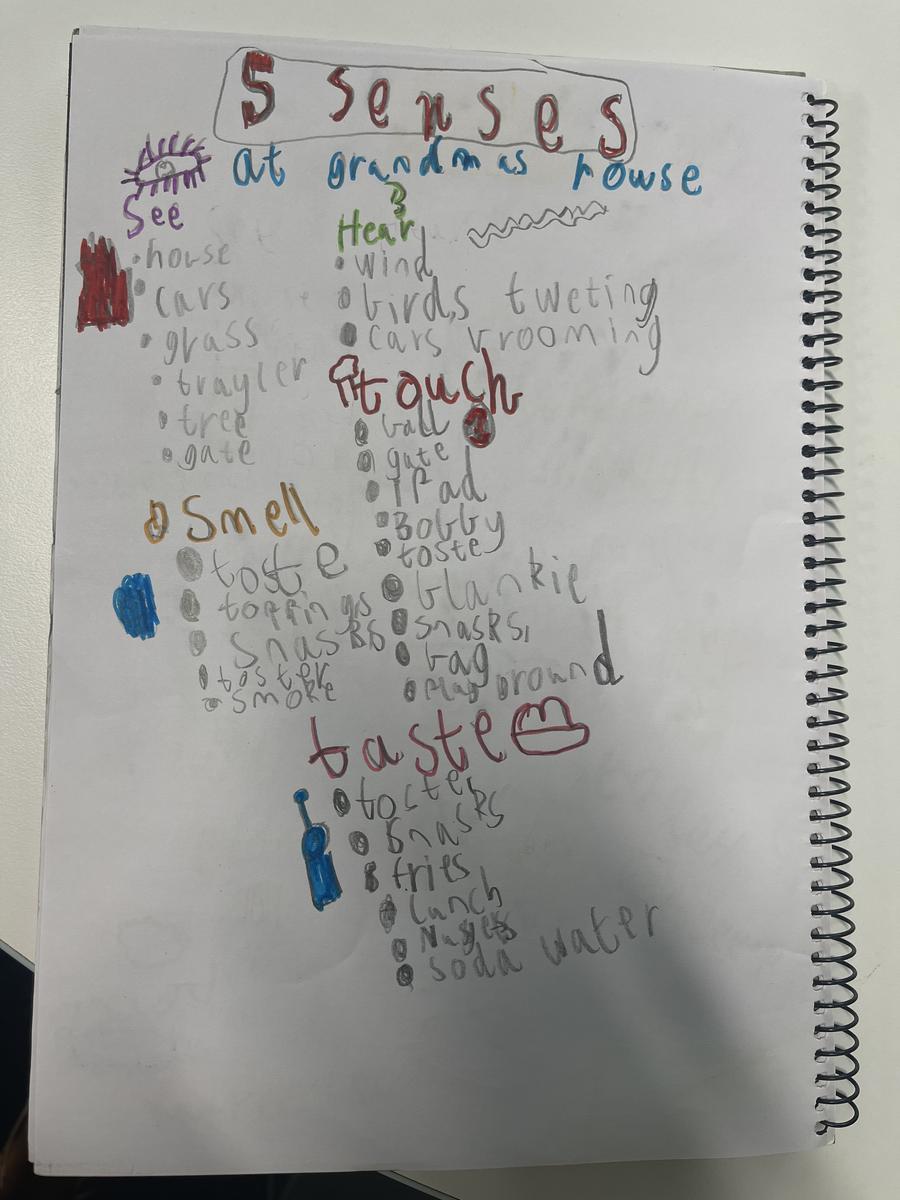 5 senses
at grandmas howse
See
• house
• cars
• grass
• trayler
• tree
• gate
Hear
• wind
• birds tweting
• cars vrooming
touch
• ball
• gate
• iPad
• Bobby
• toste
• blankie
• snasks
• bag
• Play Ground
Smell
• toste
• toppings
• snasks
• toster
• smoke
taste
• toste
• snasks
• fries
• Lunch
• Nugets
• soda water